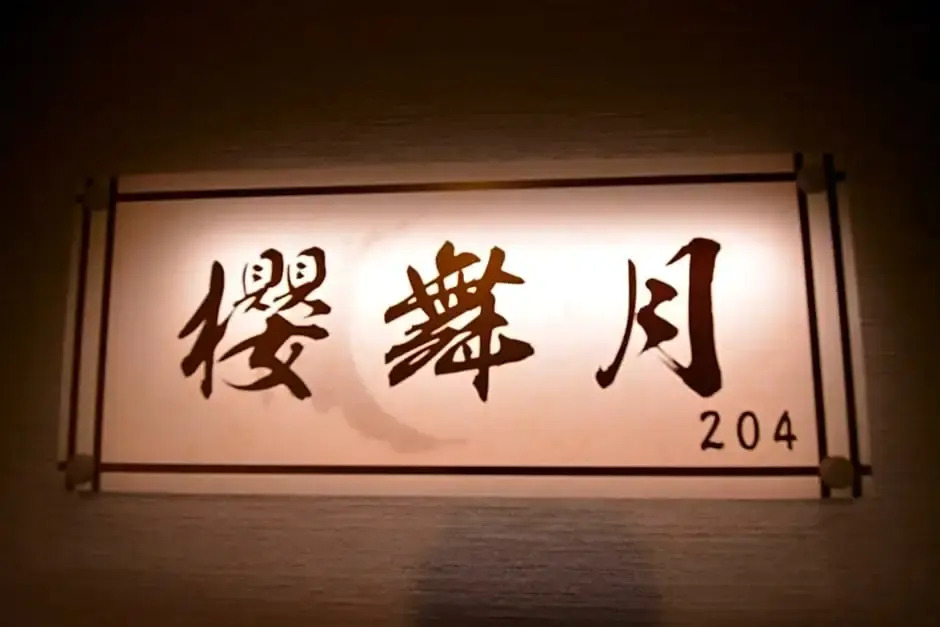 櫻舞月
204